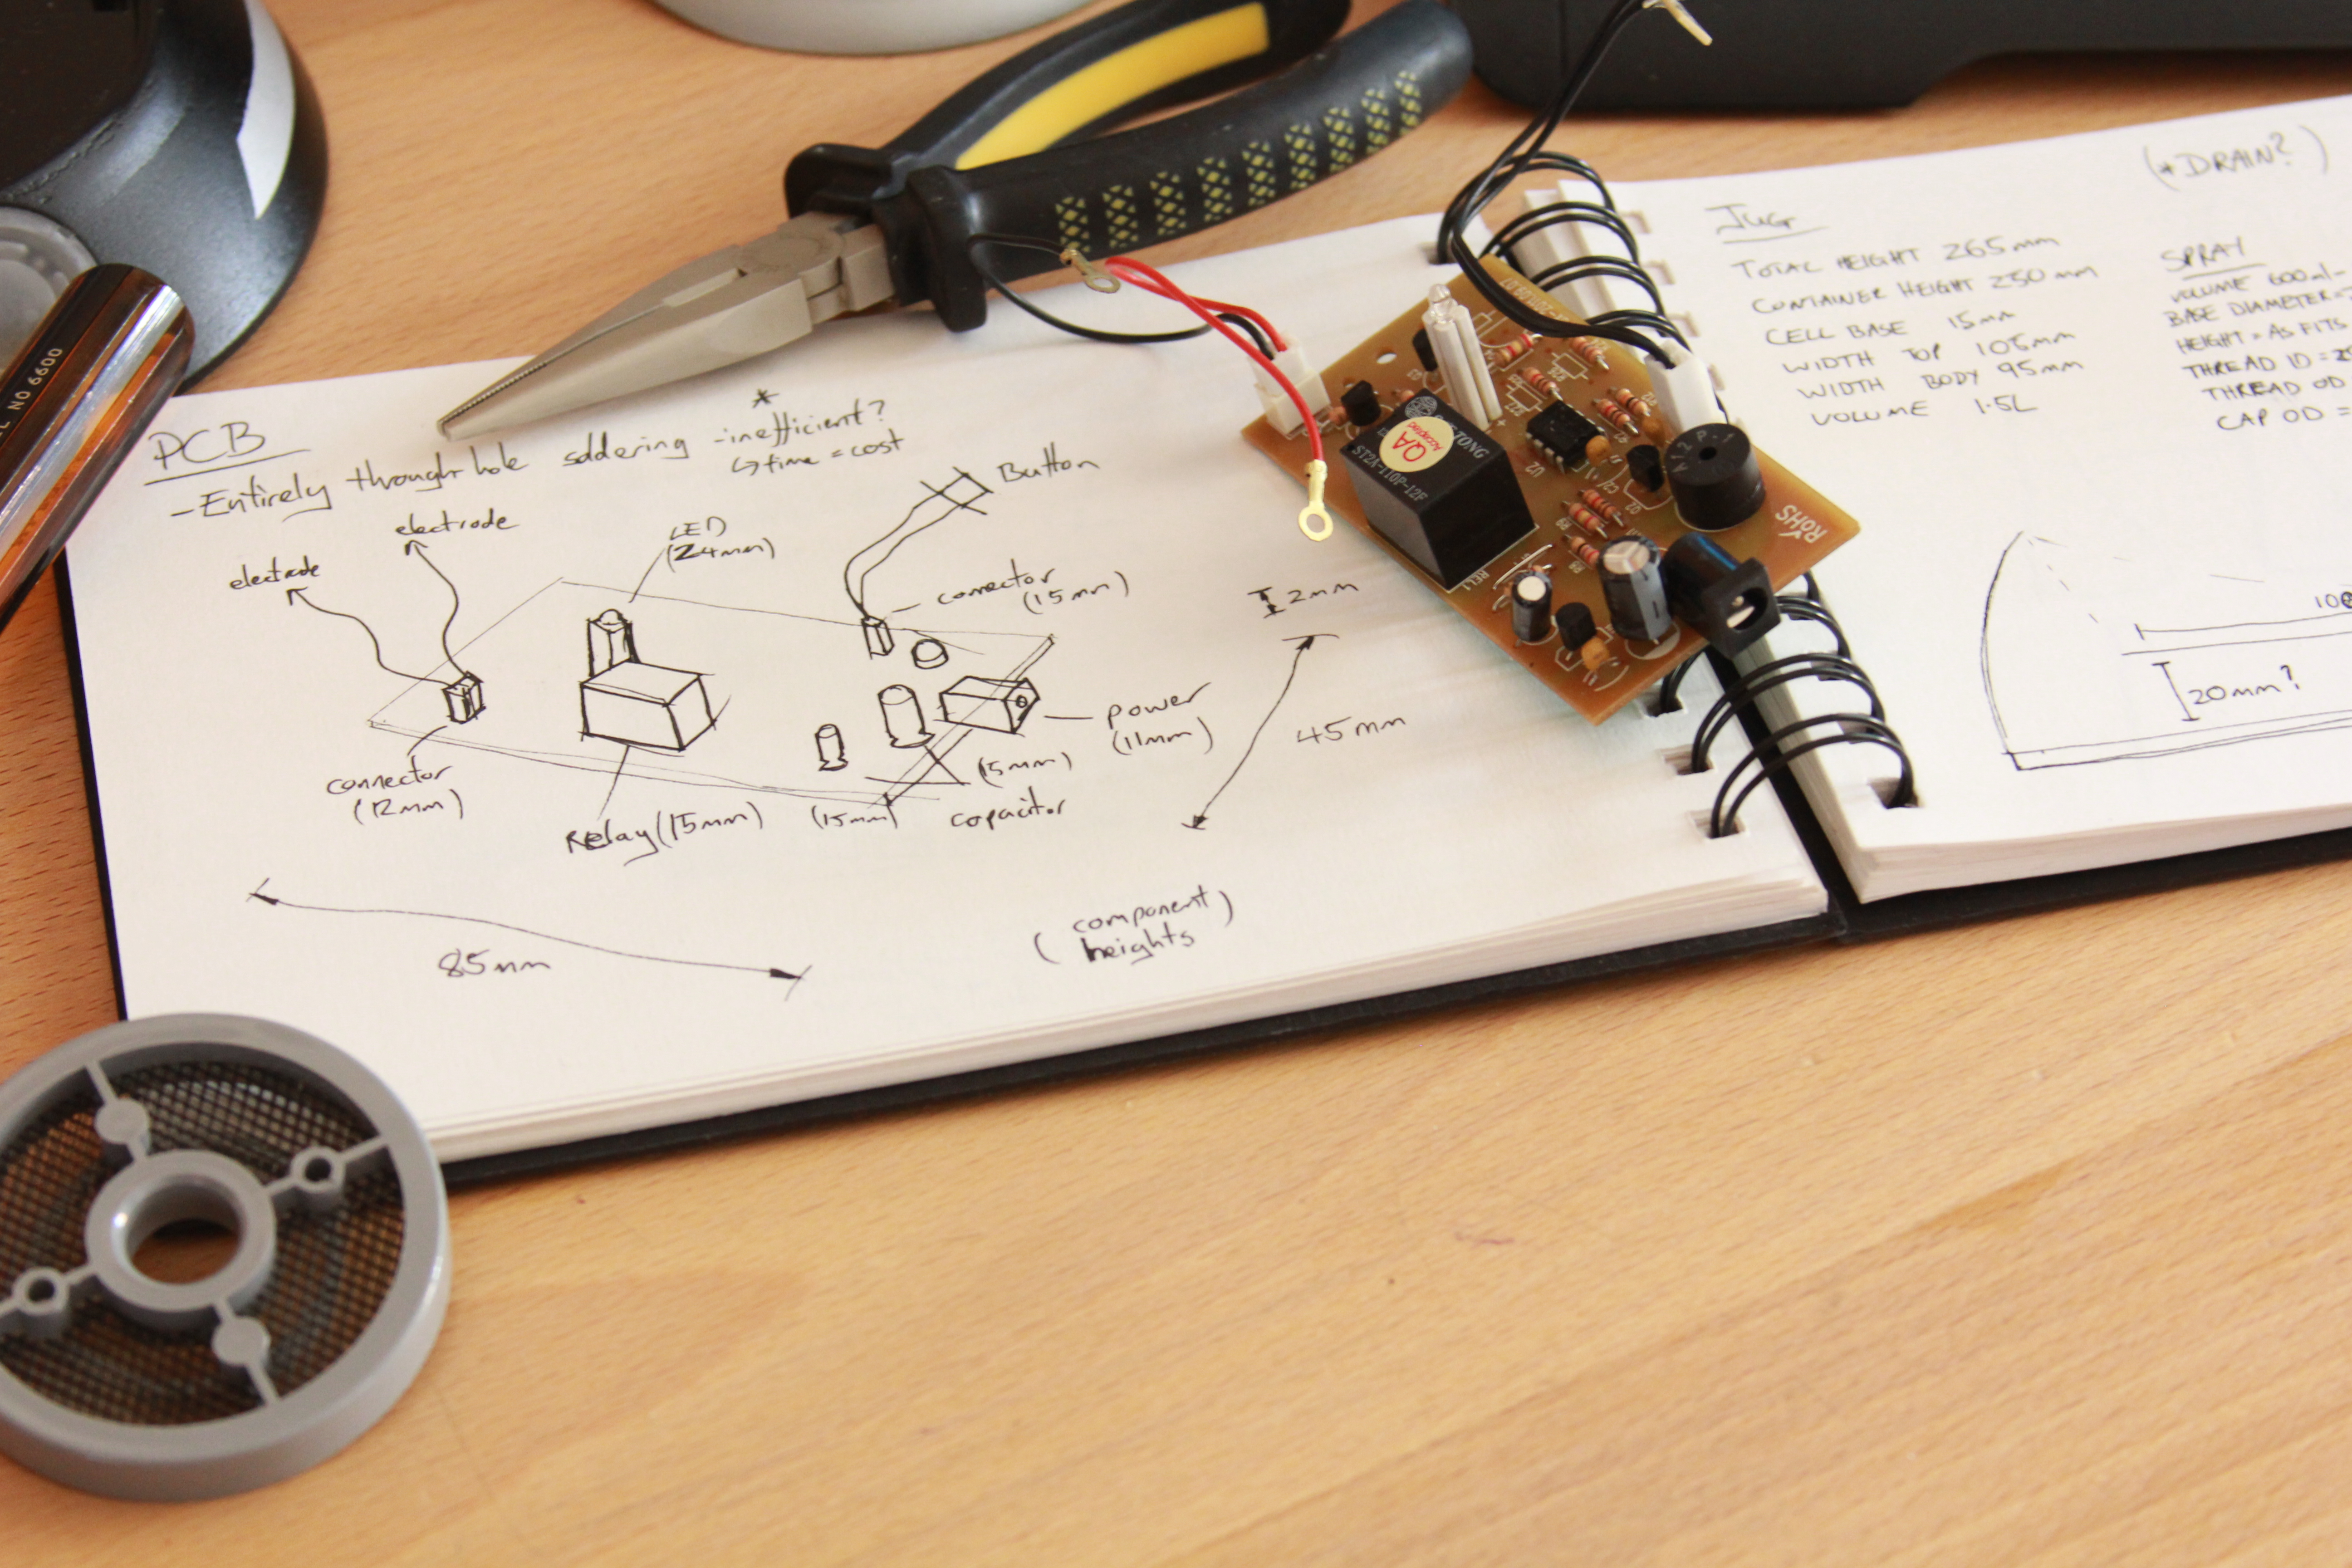 PCB
- Entirely through hole soldering - inefficient?
*
↳ time = cost
electrode
electrode
LED
(24mm)
Button
connector
(15mm)
connector
(12mm)
Relay (15mm)
(15mm)
(15mm)
capacitor
power
(11mm)
2mm
45mm
85mm
(component
heights)
(*DRAIN?)
JUG
TOTAL HEIGHT 265mm
CONTAINER HEIGHT 250mm
CELL BASE 15mm
WIDTH TOP 105mm
WIDTH BODY 95mm
VOLUME 1.5L
SPRAY
VOLUME 600ml
BASE DIAMETER =
HEIGHT = AS FITS
THREAD ID =
THREAD OD
CAP OD =
20mm?
QA
Accepted
ST2A-110P-12F
RoHS
REL1
U2
NO 6600